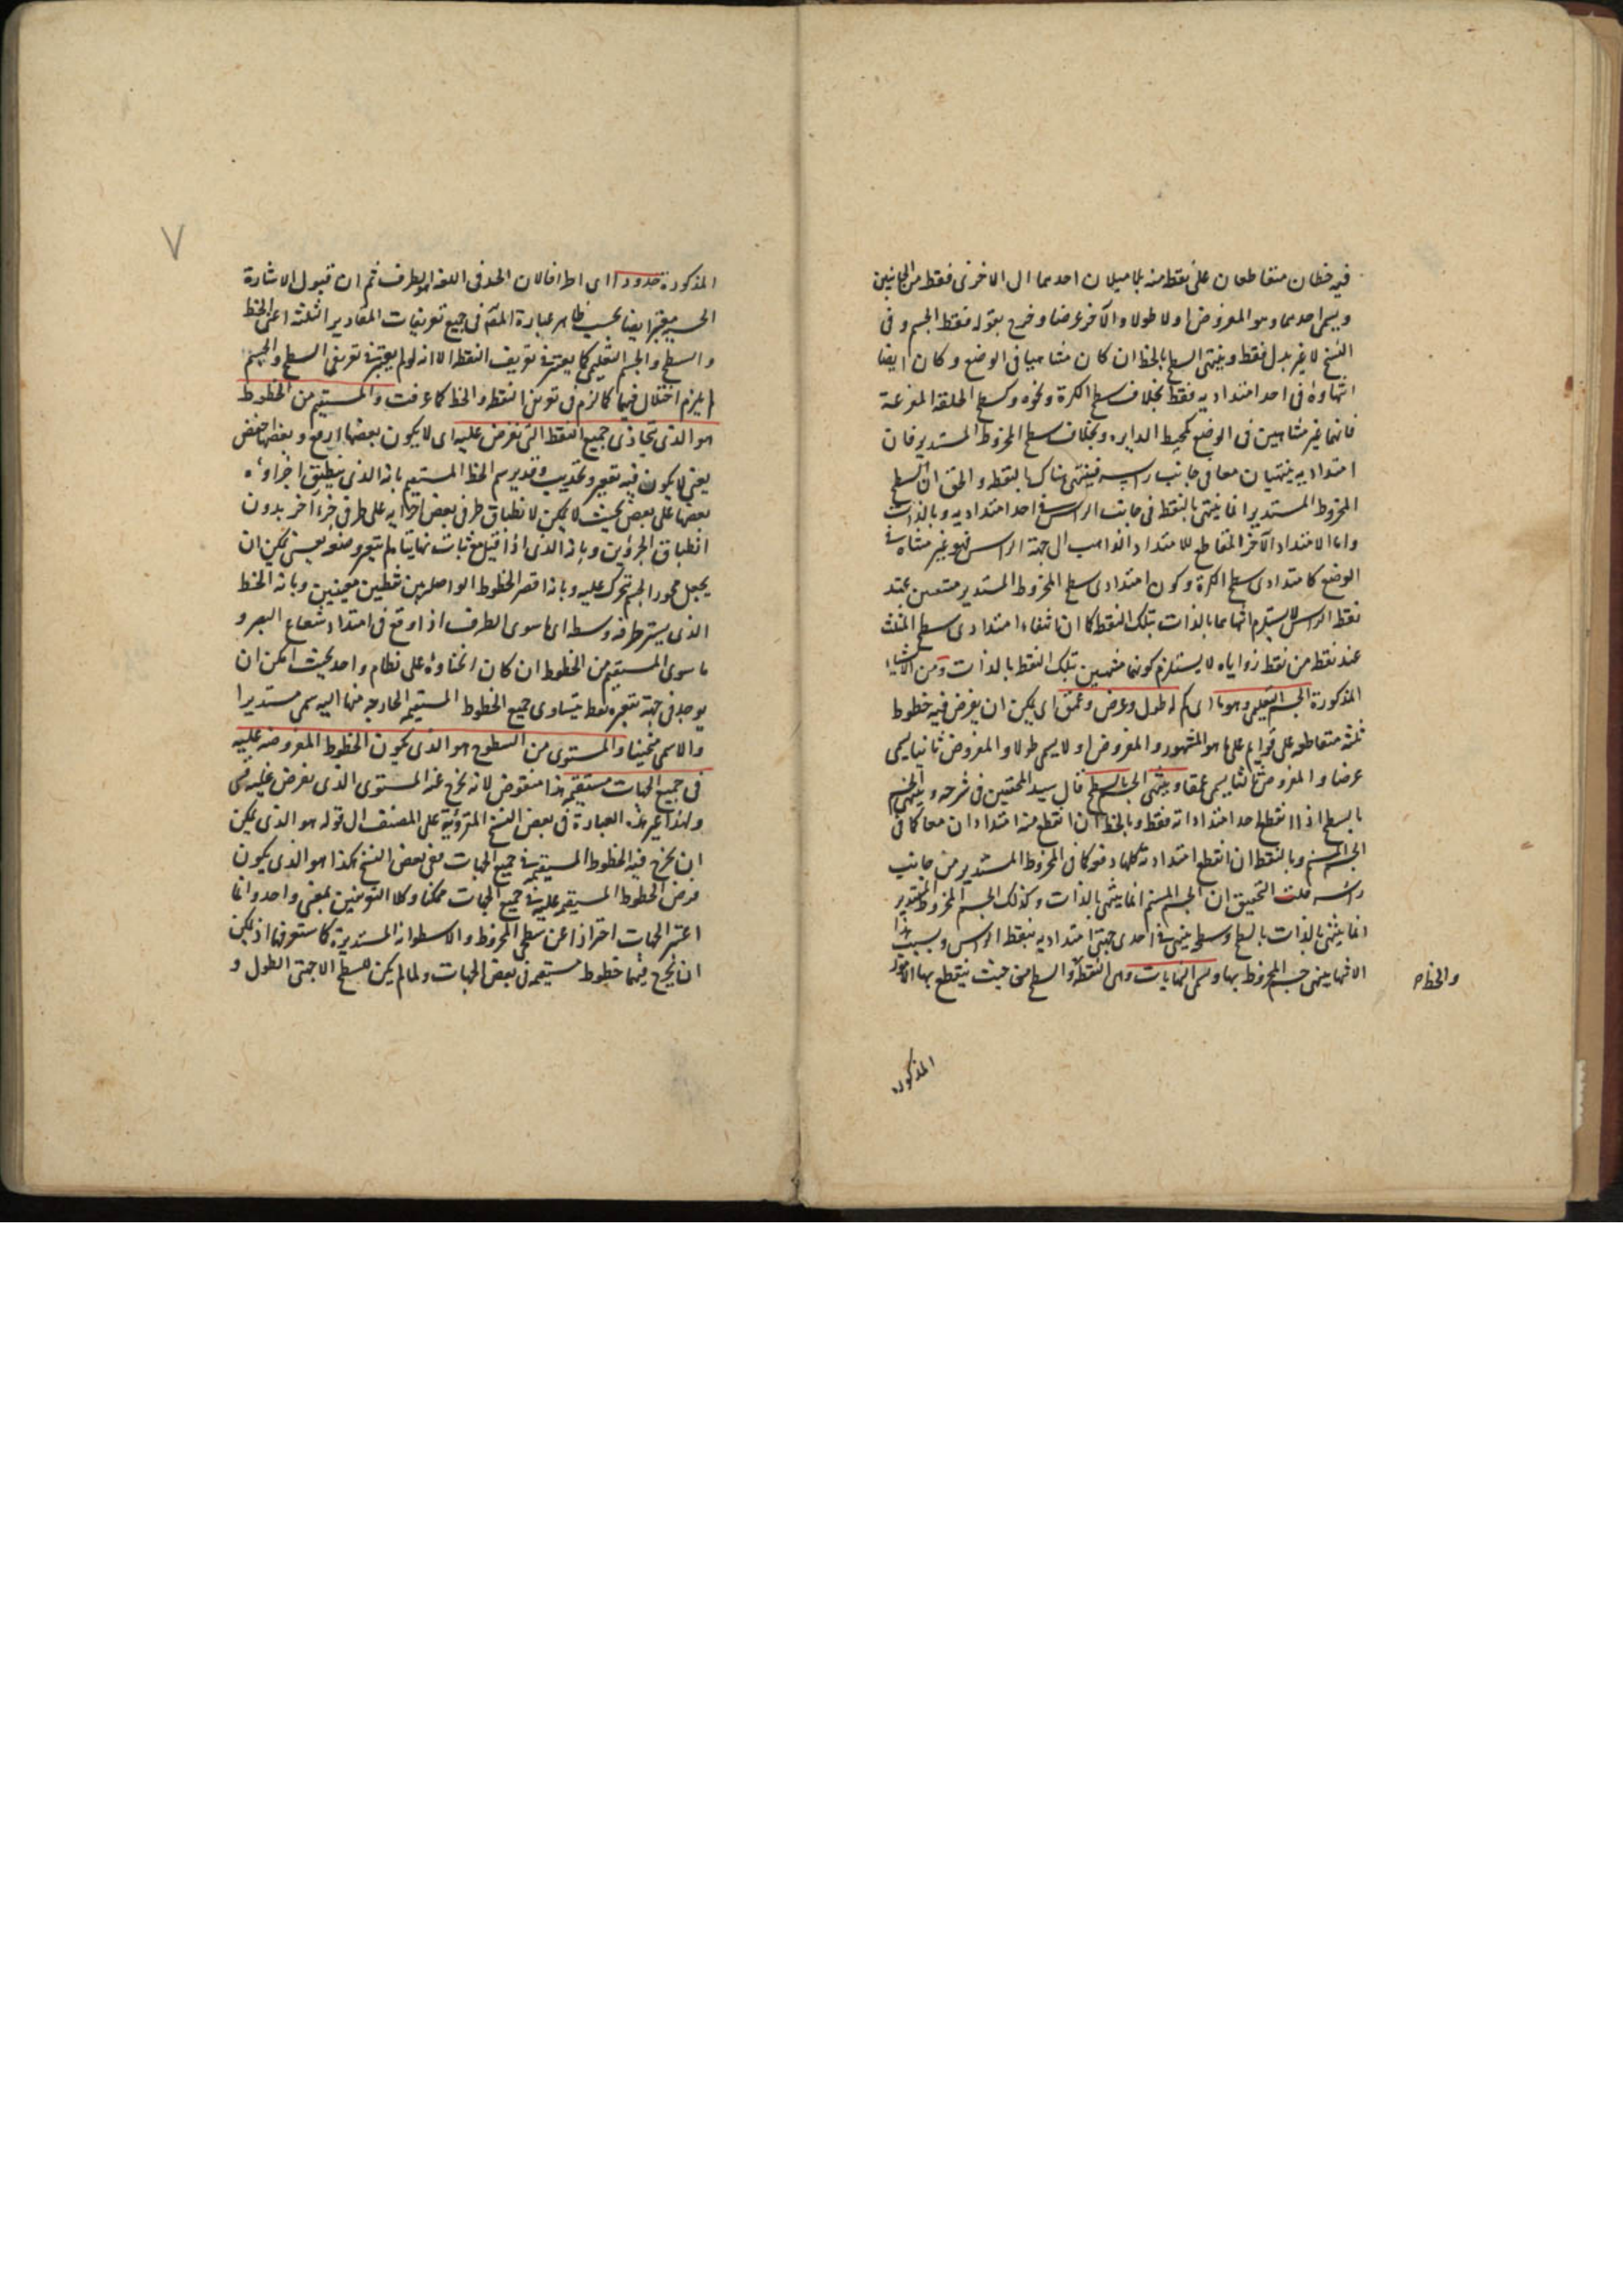 فيه خطان متقاطعان على نقطة منه بلا ميلان احدهما الى الاخرى فقط من الجانبين
ويسمى احدهما وهو المفروض اولا طولا والآخر عرضا وخرج بقوله فقط الجسم وفى
النسخ لا غير بدل فقط وينتهى السطح بالخط ان كان متناهيا فى الوضع وكان ايضا
انتهاؤه فى احد امتداديه فقط بخلاف سطح الكرة ونحوه وكسطح الحلقة المفرغة
فانهما غير متناهيين فى الوضع كمحيط الدايره وبخلاف سطح المخروط المستدير فان
امتداديه ينتهيان معا فى جانب راسه فينتهى هناك بالنقطة والحق ان السطح
المخروط المستدير انما ينتهى بالنقطة فى جانب الراس فى احد امتداديه وبالذات
واما الامتداد الآخر المقاطع للامتداد الذاهب الى جهة الراس فهو غير متناه فى
الوضع كامتدادى سطح الكرة وكون امتدادى سطح المخروط المستدير منتفيين عند
نقطة الراس لا يستلزم انتهاءهما بالذات بتلك النقطة كما ان انتفاء امتدادى سطح المثلث
عند نقطة من نقط زواياه لا يستلزم كونهما منتهيين بتلك النقطة بالذات ومن الاشياء
المذكورة الجسم التعليمى وهو ما اى كم له طول وعرض وعمق اى يمكن ان يفرض فيه خطوط
ثلثة متقاطعة على قوايم على ما هو المشهور والمفروض اولا يسمى طولا والمفروض ثانيا يسمى
عرضا والمفروض ثالثا يسمى عمقا وينتهى الجسم بالسطح قال سيد المحققين فى شرحه وينتهى الجسم
بالسطح اذا انقطع احد امتداداته فقط وبالخط ان انقطع منه امتدادان معا كما فى
الجسم المسنم وبالنقطة ان انقطع امتداداته كلها دفعة كما فى المخروط المستدير من جانب
راسه قلت التحقيق ان الجسم المسنم انما ينتهى بالذات وكذلك الجسم المخروط المستدير
انما ينتهى بالذات بالسطح وسطحه ينتهى فى احدى جهتى امتداديه بنقطة الراس وبسبب هذا
الانتهاء ينتهى جسم المخروط بها ويسمى النهايات وهى النقطة والسطح من حيث ينقطع بها الامور
والخط صح
المذكورة
٧
المذكورة حدودا اى اطرافا لان الحد فى اللغة الطرف ثم ان قبول الاشارة
الحسية معتبر ايضا بحسب ظاهر عبارة المصنف فى جميع تعريفات المقادير الثلثة اعنى الخط
والسطح والجسم التعليمى كما يعتبر فى تعريف النقطة الا انه لو لم يعتبر فى تعريفى السطح والجسم
لم يلزم اختلال فيهما كما لزم فى تعريفى النقطة والخط كما عرفت والمستقيم من الخطوط
هو الذى يتحاذى جميع النقط التى تفرض عليه اى لا يكون بعضها ارفع وبعضها اخفض
يعنى لا يكون فيه تقعير وتحديب وقد يرسم الخط المستقيم بانه الذى ينطبق اجزاؤه
بعضها على بعض بحيث لا يمكن لا نطباق طرفى بعض اجزائه على طرفى جزء آخر بدون
انطباق الجزؤين وبانه الذى اذا فتل مع ثبات نهايتيه لم يتغير وضعه يعنى يمكن ان
يجعل محور الجسم تتحرك عليه وبانه اقصر الخطوط الواصلة بين نقطتين معينتين وبانه الخط
الذى يستر طرفه وسطه اى ما سوى الطرف اذا وقع فى امتداد شعاع البصر و
ما سوى المستقيم من الخطوط ان كان انحناؤه على نظام واحد بحيث امكن ان
يوجد فى جهة تقعره نقطة يتساوى جميع الخطوط المستقيمة الخارجة منها اليه سمى مستديرا
والا سمى منحنيا والمستوى من السطوح هو الذى يكون الخطوط المفروضة عليه
فى جميع الجهات مستقيمة هذا منقوض لانه يخرج عنه المستوى الذى يفرض عليه قسى
ولهذا غير هذه العبارة فى بعض النسخ المقروءة على المصنف الى قوله هو الذى يمكن
ان يخرج فيه الخطوط المستقيمة فى جميع الجهات وفى بعض النسخ هكذا هو الذى يكون
فرض الخطوط المستقيمة عليه فى جميع الجهات ممكنا وكلا التعريفين بمعنى واحد وانما
اعتبر الجهات احترازا عن سطحى المخروط والاسطوانة المستديرة كما ستعرفها اذ يمكن
ان يخرج فيهما خطوط مستقيمة فى بعض الجهات ولما لم يكن للسطح الا جهتى الطول و